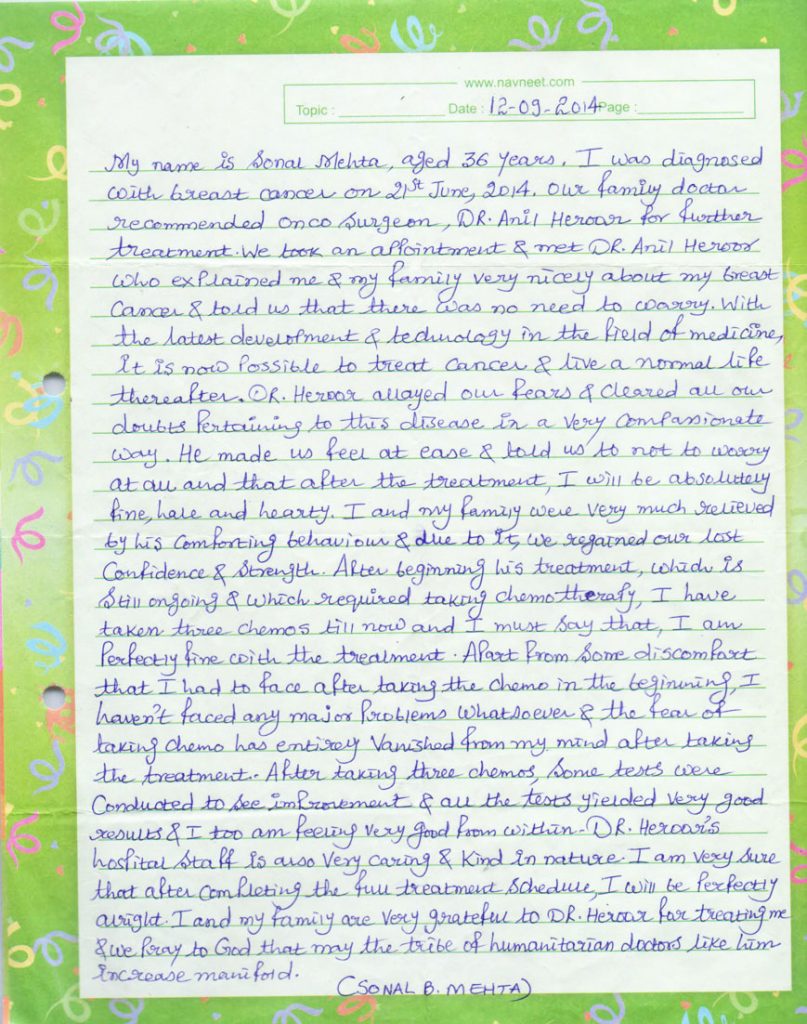 www.navneet.com
Topic : Date : 12-09-2014 Page :
My name is Sonal Mehta, aged 36 years. I was diagnosed
with breast cancer on 21st June, 2014. Our family doctor
recommended Onco Surgeon, DR. Anil Heroor for further
treatment. We took an appointment & met DR. Anil Heroor
who explained me & my family very nicely about my breast
Cancer & told us that there was no need to worry. With
the latest development & technology in the field of medicine,
it is now Possible to treat cancer & live a normal life
thereafter. DR. Heroor allayed our fears & cleared all our
doubts Pertaining to this disease in a very compassionate
way. He made us feel at ease & told us to not to worry
at all and that after the treatment, I will be absolutely
fine, hale and hearty. I and my family were very much relieved
by his comforting behaviour & due to it, we regained our lost
Confidence & Strength. After beginning his treatment, which is
still ongoing & which required taking chemotherapy, I have
taken three chemos till now and I must say that, I am
Perfectly fine with the treatment. Apart from some discomfort
that I had to face after taking the chemo in the beginning, I
haven't faced any major Problems whatsoever & the fear of
taking chemo has entirely Vanished from my mind after taking
the treatment. After taking three chemos, some tests were
Conducted to see improvement & all the tests yielded very good
results & I too am feeling very good from within. DR. Heroor's
hospital staff is also very caring & kind in nature. I am very sure
that after completing the full treatment schedule, I will be Perfectly
alright. I and my family are very grateful to DR. Heroor for treating me
& we Pray to God that may the tribe of humanitarian doctors like him
increase manifold.
(SONAL B. MEHTA)